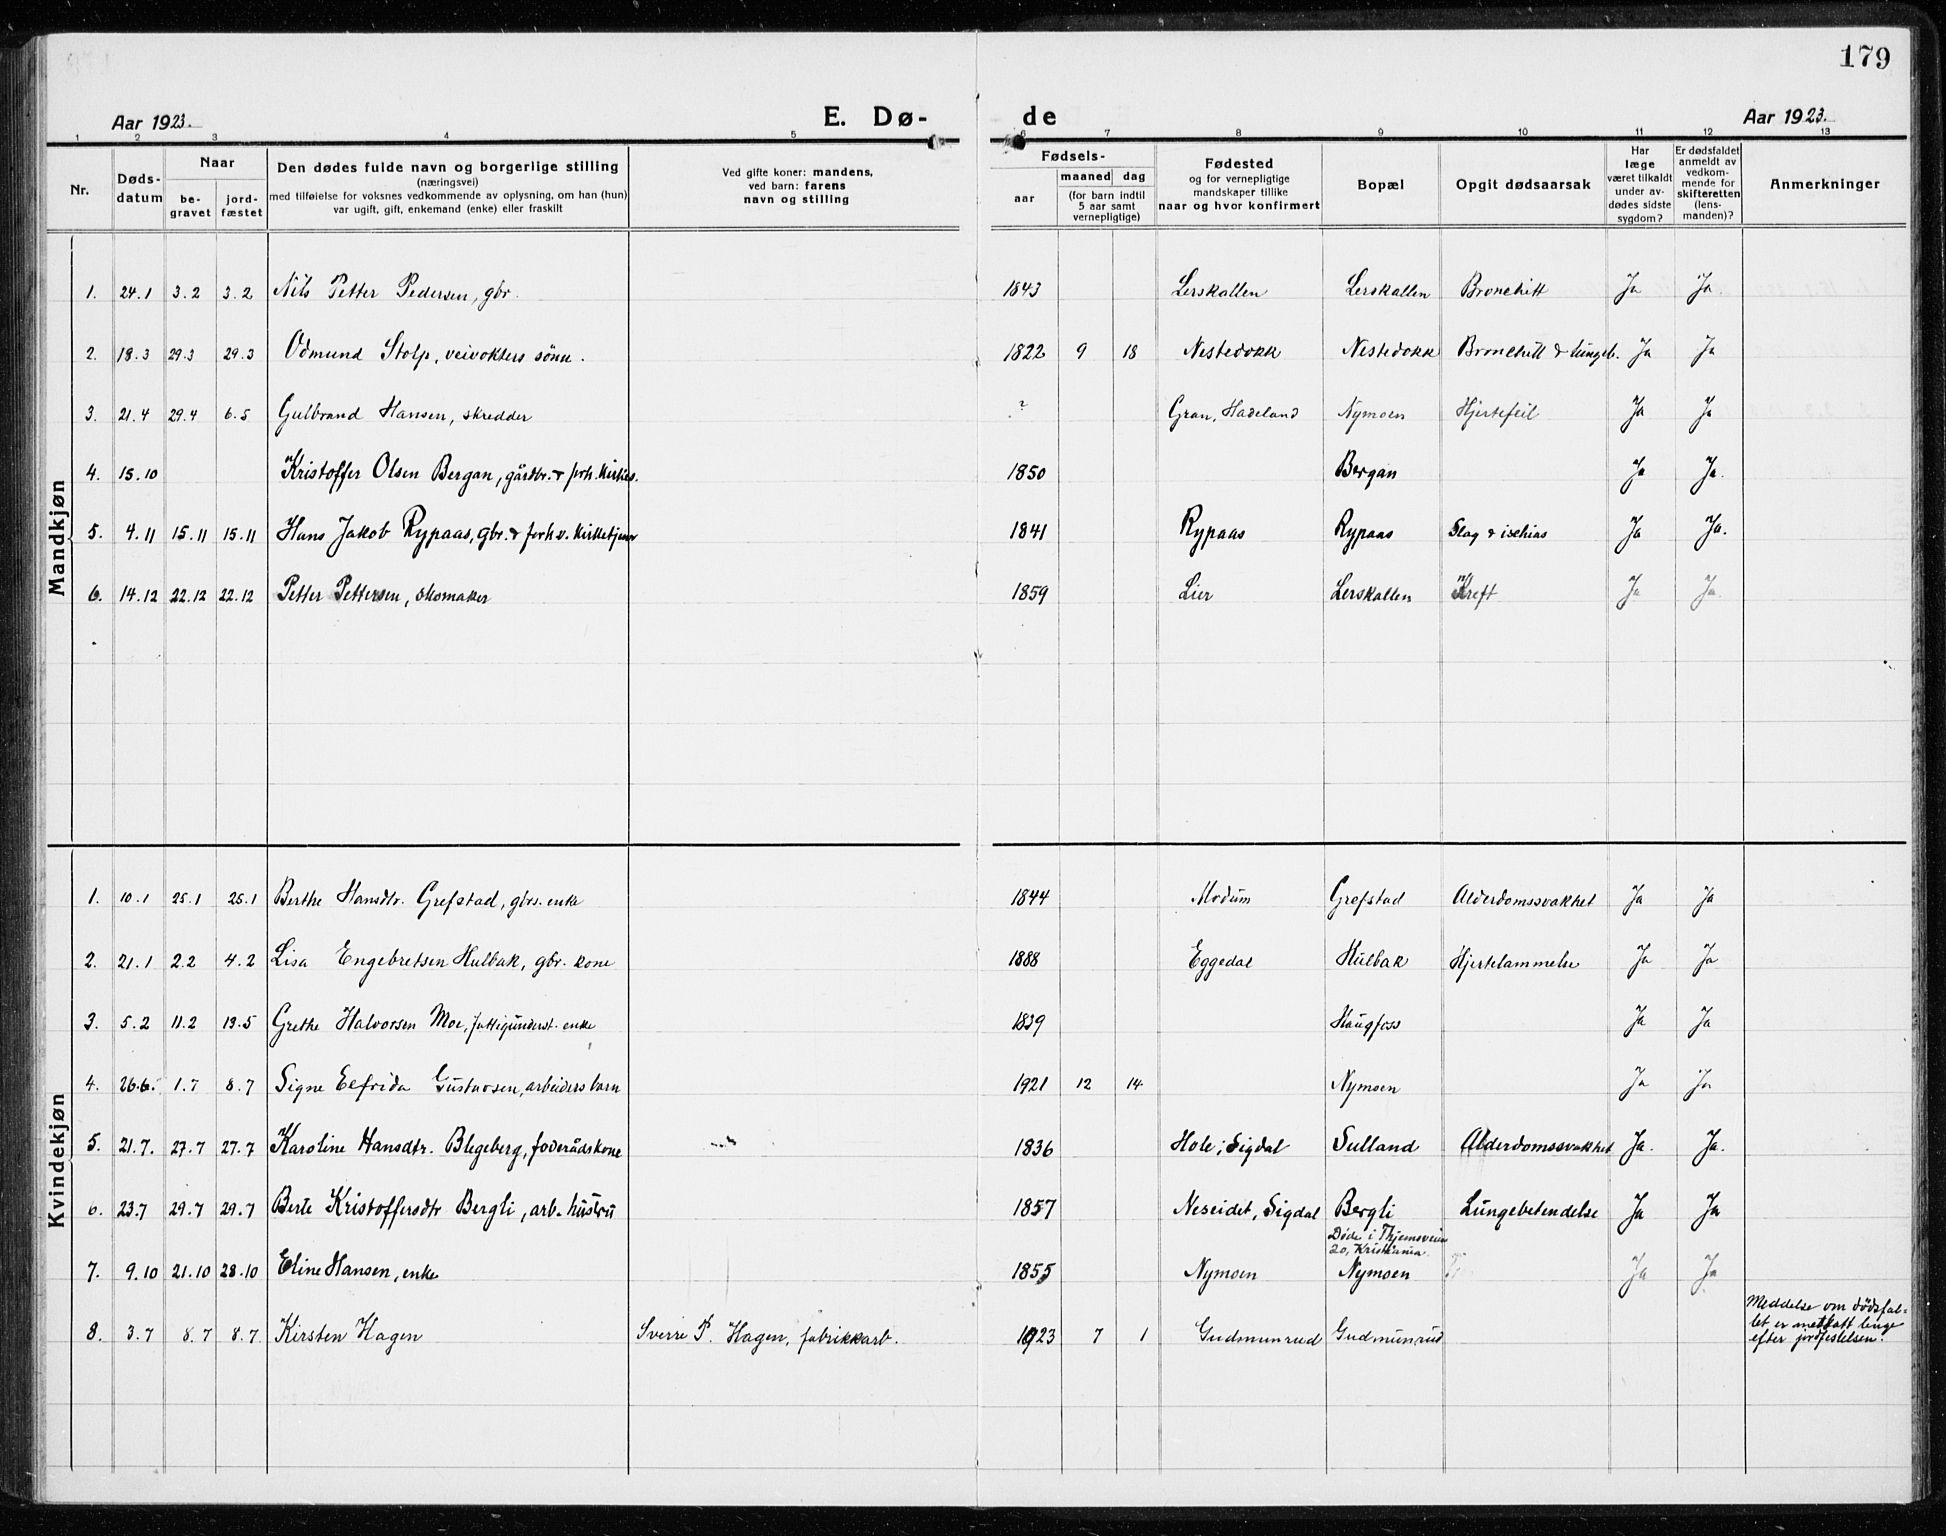 179
Aar 1923. E. Dø- de Aar 1923.
1 2 3 4 5 6 7 8 9 10 11 12 13
Nr. Dødsdatum Naar begravet jordfæstet Den dødes fulde navn og borgerlige stilling (næringsvei) med tilføielse for voksnes vedkommende av oplysning, om han (hun) var ugift, gift, enkemand (enke) eller fraskilt Ved gifte koner: mandens, ved barn: farens navn og stilling Fødsels- aar maaned dag (for barn indtil 5 aar samt vernepligtige) Fødested og for vernepligtige mandskaper tillike naar og hvor konfirmert Bopæl Opgit dødsaarsak Har læge været tilkaldt under avdødes sidste sygdom? Er dødsfaldet anmeldt av vedkommende for skifteretten (lensmanden)? Anmerkninger
Mandkjøn
1. 24.1 3.2 3.2 Nils Petter Pedersen, gbr. 1843 Lerskallen Lerskallen Bronchitt Ja Ja.
2. 18.3 29.3 29.3 Odmund Stolp, veivokters sönn. 1822 9 18 Nestedokk Nestedokk Bronchitt & lungeb. Ja Ja
3. 21.4 29.4 6.5 Gulbrand Hansen, skredder ? Gran, Hadeland Nymoen Hjertefeil Ja Ja
4. 15.10 Kristoffer Olsen Bergan, gårdbr. & forh. kirkes. 1850 Bergan Ja Ja.
5. 4.11 15.11 15.11 Hans Jakob Rypaas, gbr. & forhv. kirketjener 1841 Rypaas Rypaas Slag & ischias Ja Ja.
6. 14.12 22.12 22.12 Petter Pettersen, skomaker 1859 Lier Lerskallen Kreft Ja Ja.
Kvindekjøn
1. 10.1 25.1 25.1 Berthe Hansdtr. Grefstad, gbrs. enke 1844 Modum Grefstad Alderdomssvakhet Ja Ja
2. 21.1 2.2 4.2 Lisa Engebretsen Hulbak, gbr. kone 1888 Eggedal Hulbak Hjertelammelse Ja Ja
3. 5.2 11.2 13.5 Grethe Halvorsen Moe, fattigunderst. enke 1839 Haugfoss Ja Ja
4. 26.6. 1.7 8.7 Signe Elfrida Gustavsen, arbeiders barn 1921 12 14 Nymoen Ja Ja
5. 21.7. 27.7 27.7 Karoline Hansdtr. Blegeberg, foderådskone 1836 Hole, Sigdal Sulland Alderdomssvakhet Ja. Ja.
6. 23.7 29.7 29.7 Berte Kristoffersdtr Bergli, arb. hustru 1857 Neseidet, Sigdal Bergli Lungebetendelse Ja Ja
Döde i Thjemsveien
20, Kristiania.
7. 9.10 21.10 28.10 Eline Hansen, enke 1855 Nymoen Nymoen Ja Ja.
8. 3.7 8.7 8.7 Kirsten Hagen Sverre P. Hagen, fabrikkarb. 1923 7 1 Gudmunrud Gudmunrud
Meddelse om dödsfal-
let er mottatt lenge
efter jordfestelsen.